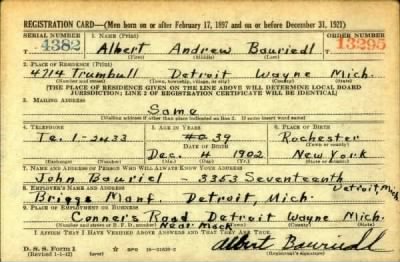 REGISTRATION CARD—(Men born on or after February 17, 1897 and on or before December 31, 1921)
SERIAL NUMBER 1. NAME (Print) ORDER NUMBER
4382 Albert Andrew Bauriedl 13295
(First) (Middle) (Last)
2. PLACE OF RESIDENCE (Print)
4714 Trumbull Detroit Wayne Mich.
(Number and street) (Town, township, village, or city) (County) (State)
[THE PLACE OF RESIDENCE GIVEN ON THE LINE ABOVE WILL DETERMINE LOCAL BOARD
JURISDICTION; LINE 2 OF REGISTRATION CERTIFICATE WILL BE IDENTICAL]
3. MAILING ADDRESS
Same
[Mailing address if other than place indicated on line 2. If same insert word same]
4. TELEPHONE 5. AGE IN YEARS 6. PLACE OF BIRTH
Te. 1-2433 39 Rochester
DATE OF BIRTH (Town or county)
Dec. 4 1902 New York
(Exchange) (Number) (Mo.) (Day) (Yr.) (State or country)
7. NAME AND ADDRESS OF PERSON WHO WILL ALWAYS KNOW YOUR ADDRESS
John Bauriel - 3363 Seventeenth
Detroit, Mich
8. EMPLOYER'S NAME AND ADDRESS
Briggs Manf. Detroit, Mich.
9. PLACE OF EMPLOYMENT OR BUSINESS
Conners Road Detroit Wayne Mich.
(Number and street or R. F. D. number) (Town) (County) (State)
Near Mack
I AFFIRM THAT I HAVE VERIFIED ABOVE ANSWERS AND THAT THEY ARE TRUE.
D. S. S. Form 1
(Revised 1-1-42) (over) GPO 16-21630-2
Albert Bauriedl